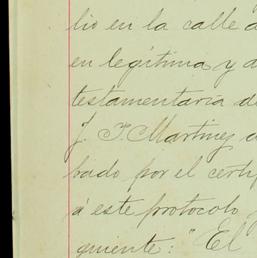 lio en la calle d
en legítima y d
testamentaria de
J. T. Martinez a
bado por el certi
á este protocolo
guiente: "El